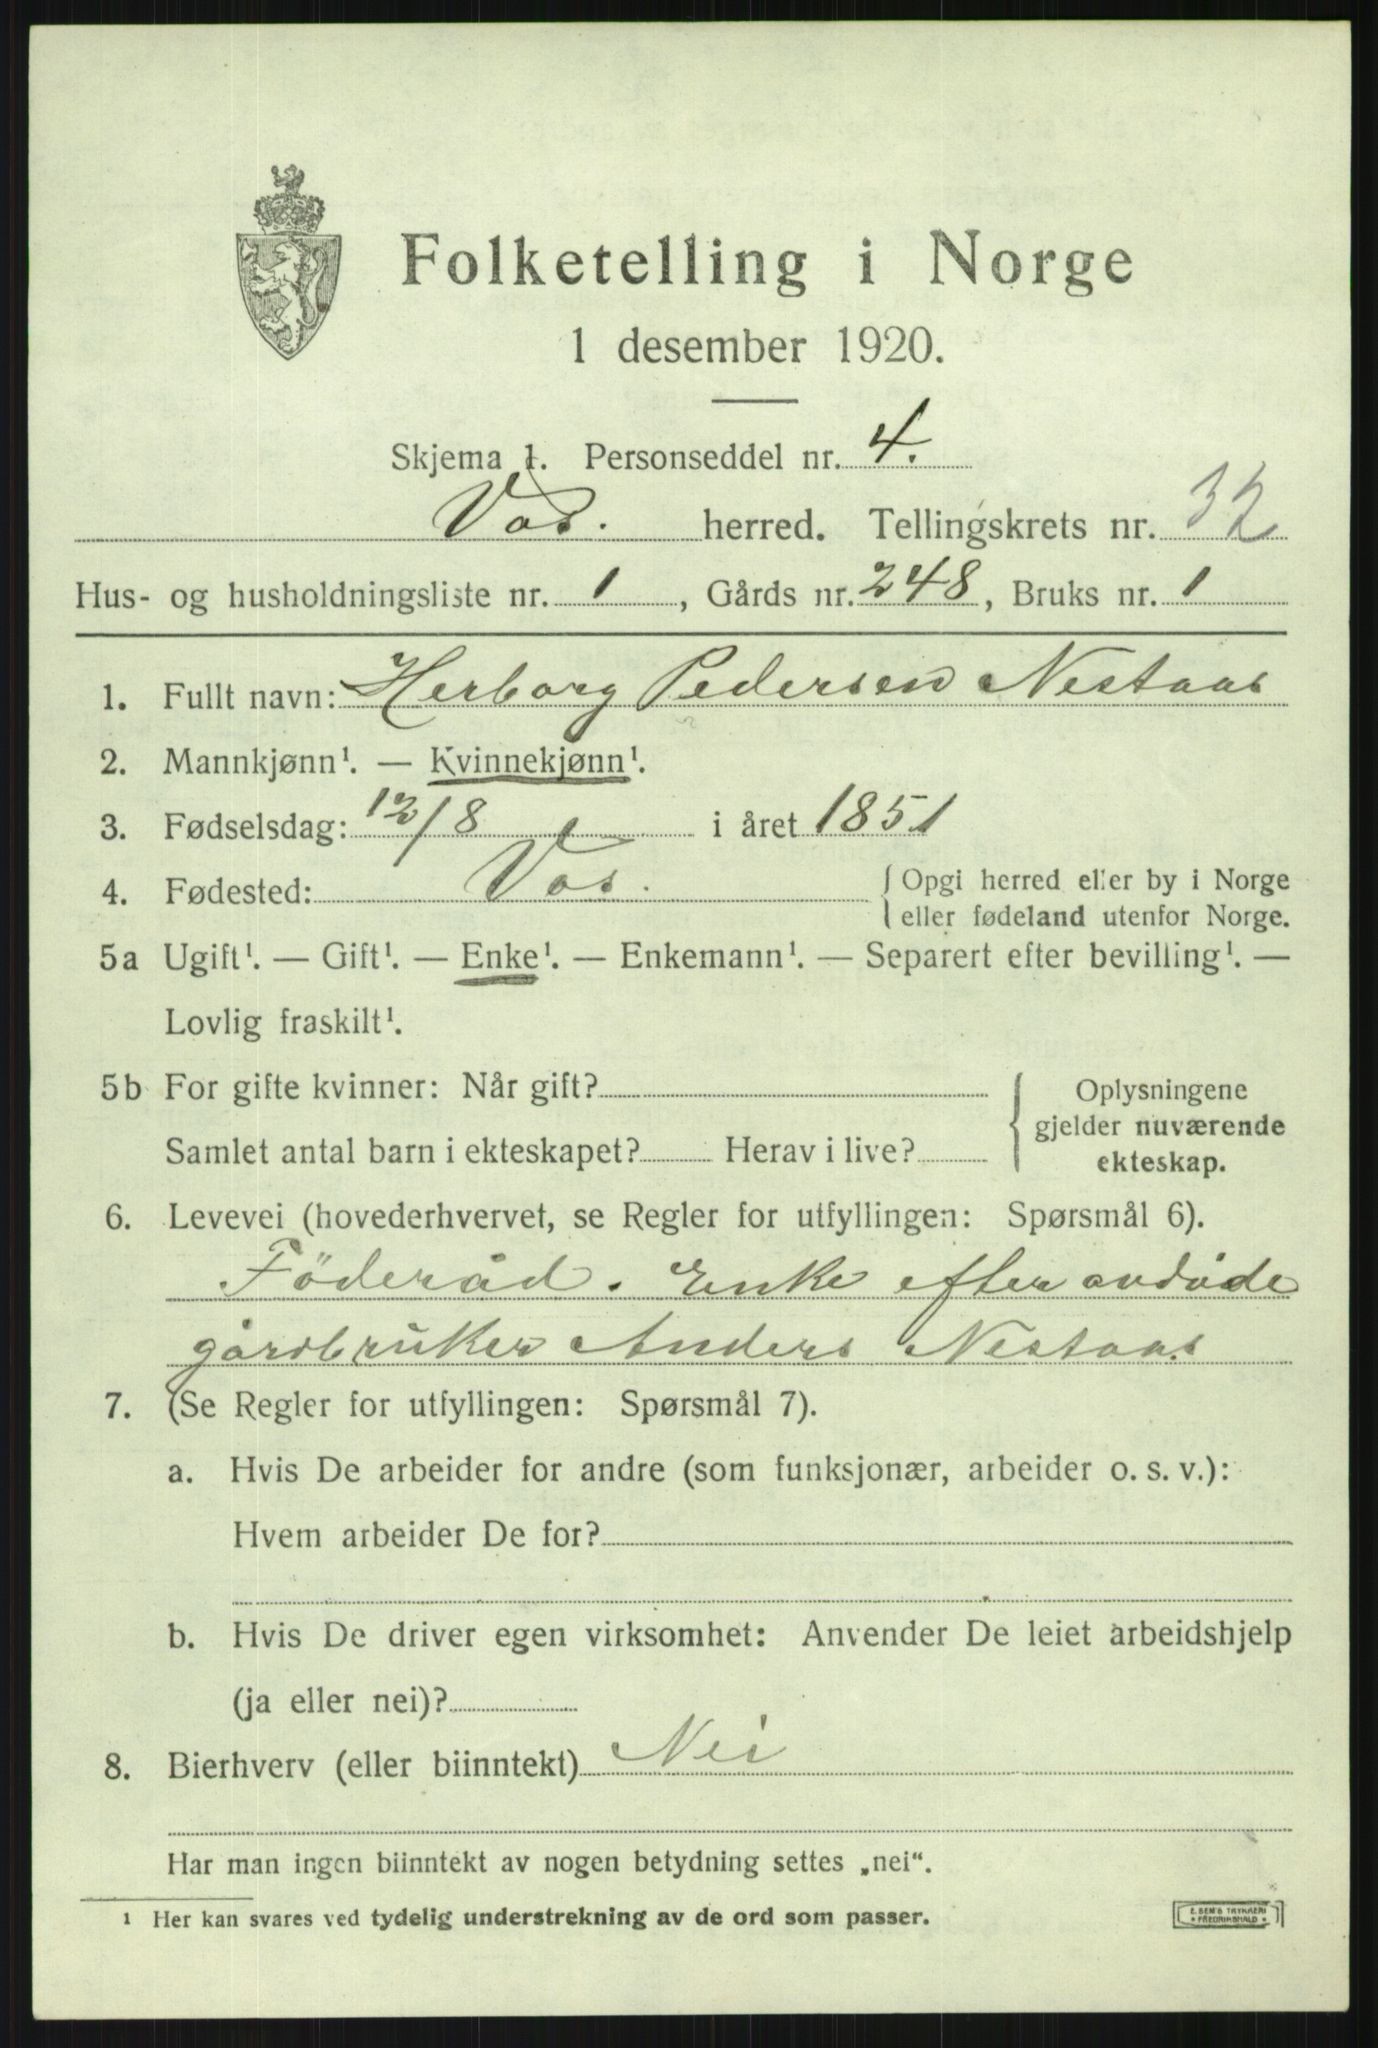 Folketelling i Norge
1 desember 1920.
Skjema 1. Personseddel nr. 4.
Vos. herred. Tellingskrets nr. 32
Hus- og husholdningsliste nr. 1, Gårds nr. 248, Bruks nr. 1
1. Fullt navn: Herborg Pedersen Nestaas
2. Mannkjønn¹. — Kvinnekjønn¹.
3. Fødselsdag: 12/8 i året 1851
4. Fødested: Vos. { Opgi herred eller by i Norge
eller fødeland utenfor Norge.
5a Ugift¹. — Gift¹. — Enke¹. — Enkemann¹. — Separert efter bevilling¹. —
Lovlig fraskilt¹.
5b For gifte kvinner: Når gift? { Oplysningene
gjelder nuværende
Samlet antal barn i ekteskapet? Herav i live? ekteskap.
6. Levevei (hovederhvervet, se Regler for utfyllingen: Spørsmål 6).
Föderåd. Enke efter avdøde
gårdbruker Anders Nestaas
7. (Se Regler for utfyllingen: Spørsmål 7).
a. Hvis De arbeider for andre (som funksjonær, arbeider o. s. v.):
Hvem arbeider De for?
b. Hvis De driver egen virksomhet: Anvender De leiet arbeidshjelp
(ja eller nei)?
8. Bierhverv (eller biinntekt) Nei
Har man ingen biinntekt av nogen betydning settes „nei“.
¹ Her kan svares ved tydelig understrekning av de ord som passer.
E. SEM'S TRYKKERI
• FREDRIKSHALD •